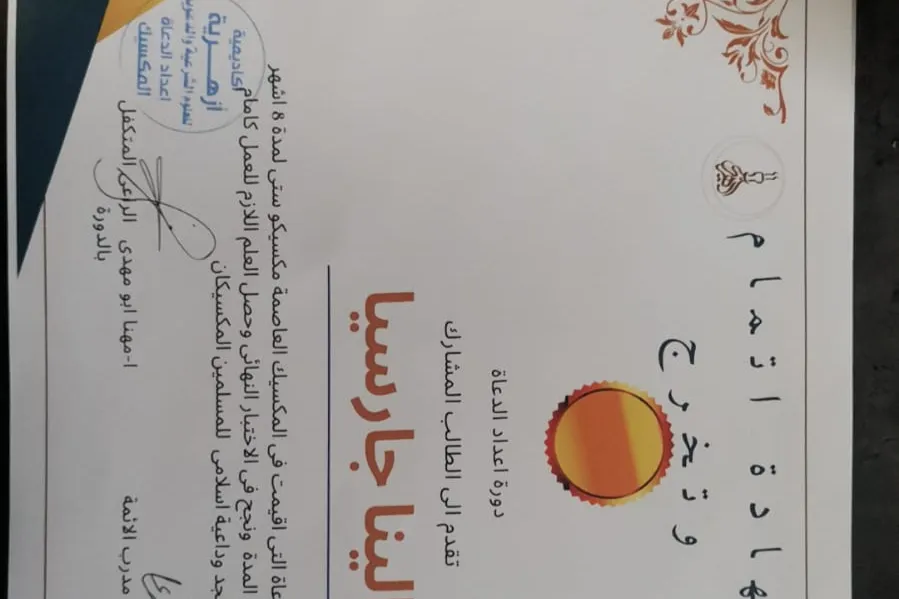 هادة اتمام
وتخرج
دورة اعداد الدعاة
تقدم الى الطالب المشارك
لينا جارسيا
عاة التى اقيمت فى المكسيك العاصمة مكسيكو ستى لمدة 8 اشهر
المدة ونجح فى الاختبار النهائى وحصل العلم اللازم للعمل كامام
جد وداعية اسلامى للمسلمين المكسيكان
مدرب الائمة
ا-مهنا ابو مهدى الراعى المتكفل
بالدورة
أكاديمية
أزهرية
للعلوم الشرعية والدعوية
اعداد الدعاة
المكسيك